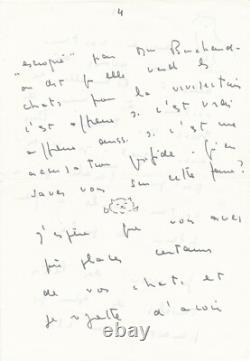 4
"escroqué" par Mme Burchand-
on dit qu'elle vend les
chats pour la vivisection
c'est affreux si c'est vrai
affreux aussi si c'est une
accusation perfide. Qu'en
savez vous sur cette femme?
j'espère que vous avez
pu placer certains
de vos chats, et
je regrette d'avoir